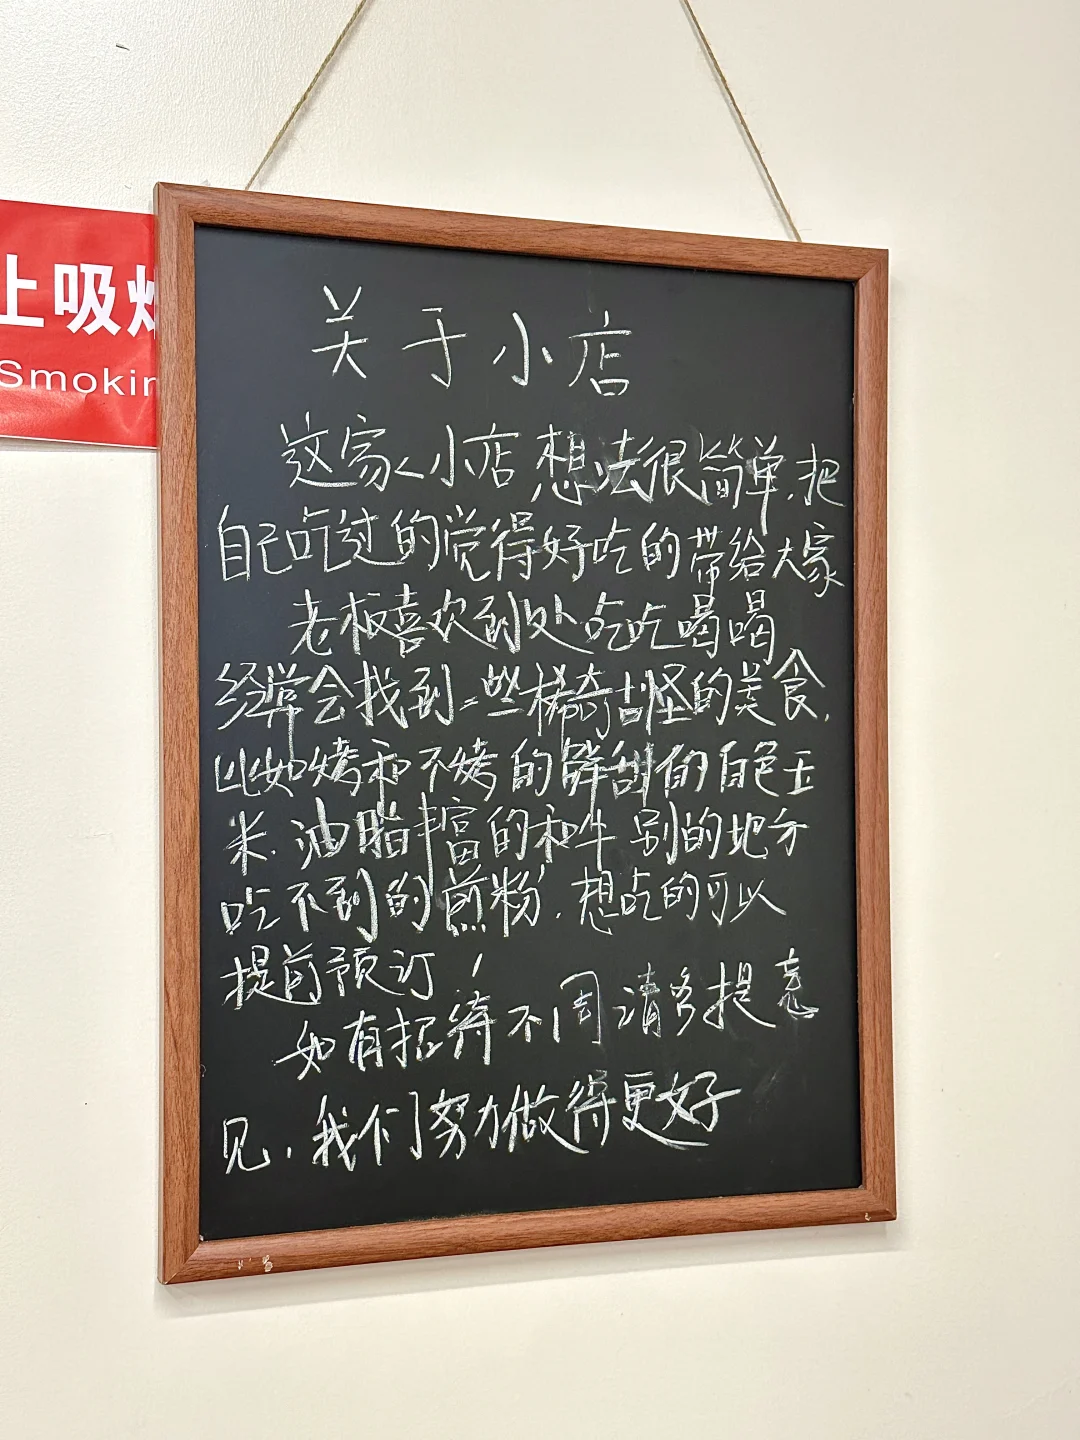 关于小店
这家小店想法很简单,把
自己吃过的觉得好吃的带给大家
老板喜欢到处吃吃喝喝
经常会找到一些稀奇古怪的美食,
比如烤和不烤的鲜甜的白色玉
米.油脂丰富的和牛别的地方
吃不到的煎粉.想吃的可以
提前预订!
如有招待不周请多提意
见.我们努力做得更好
止吸烟
Smokin